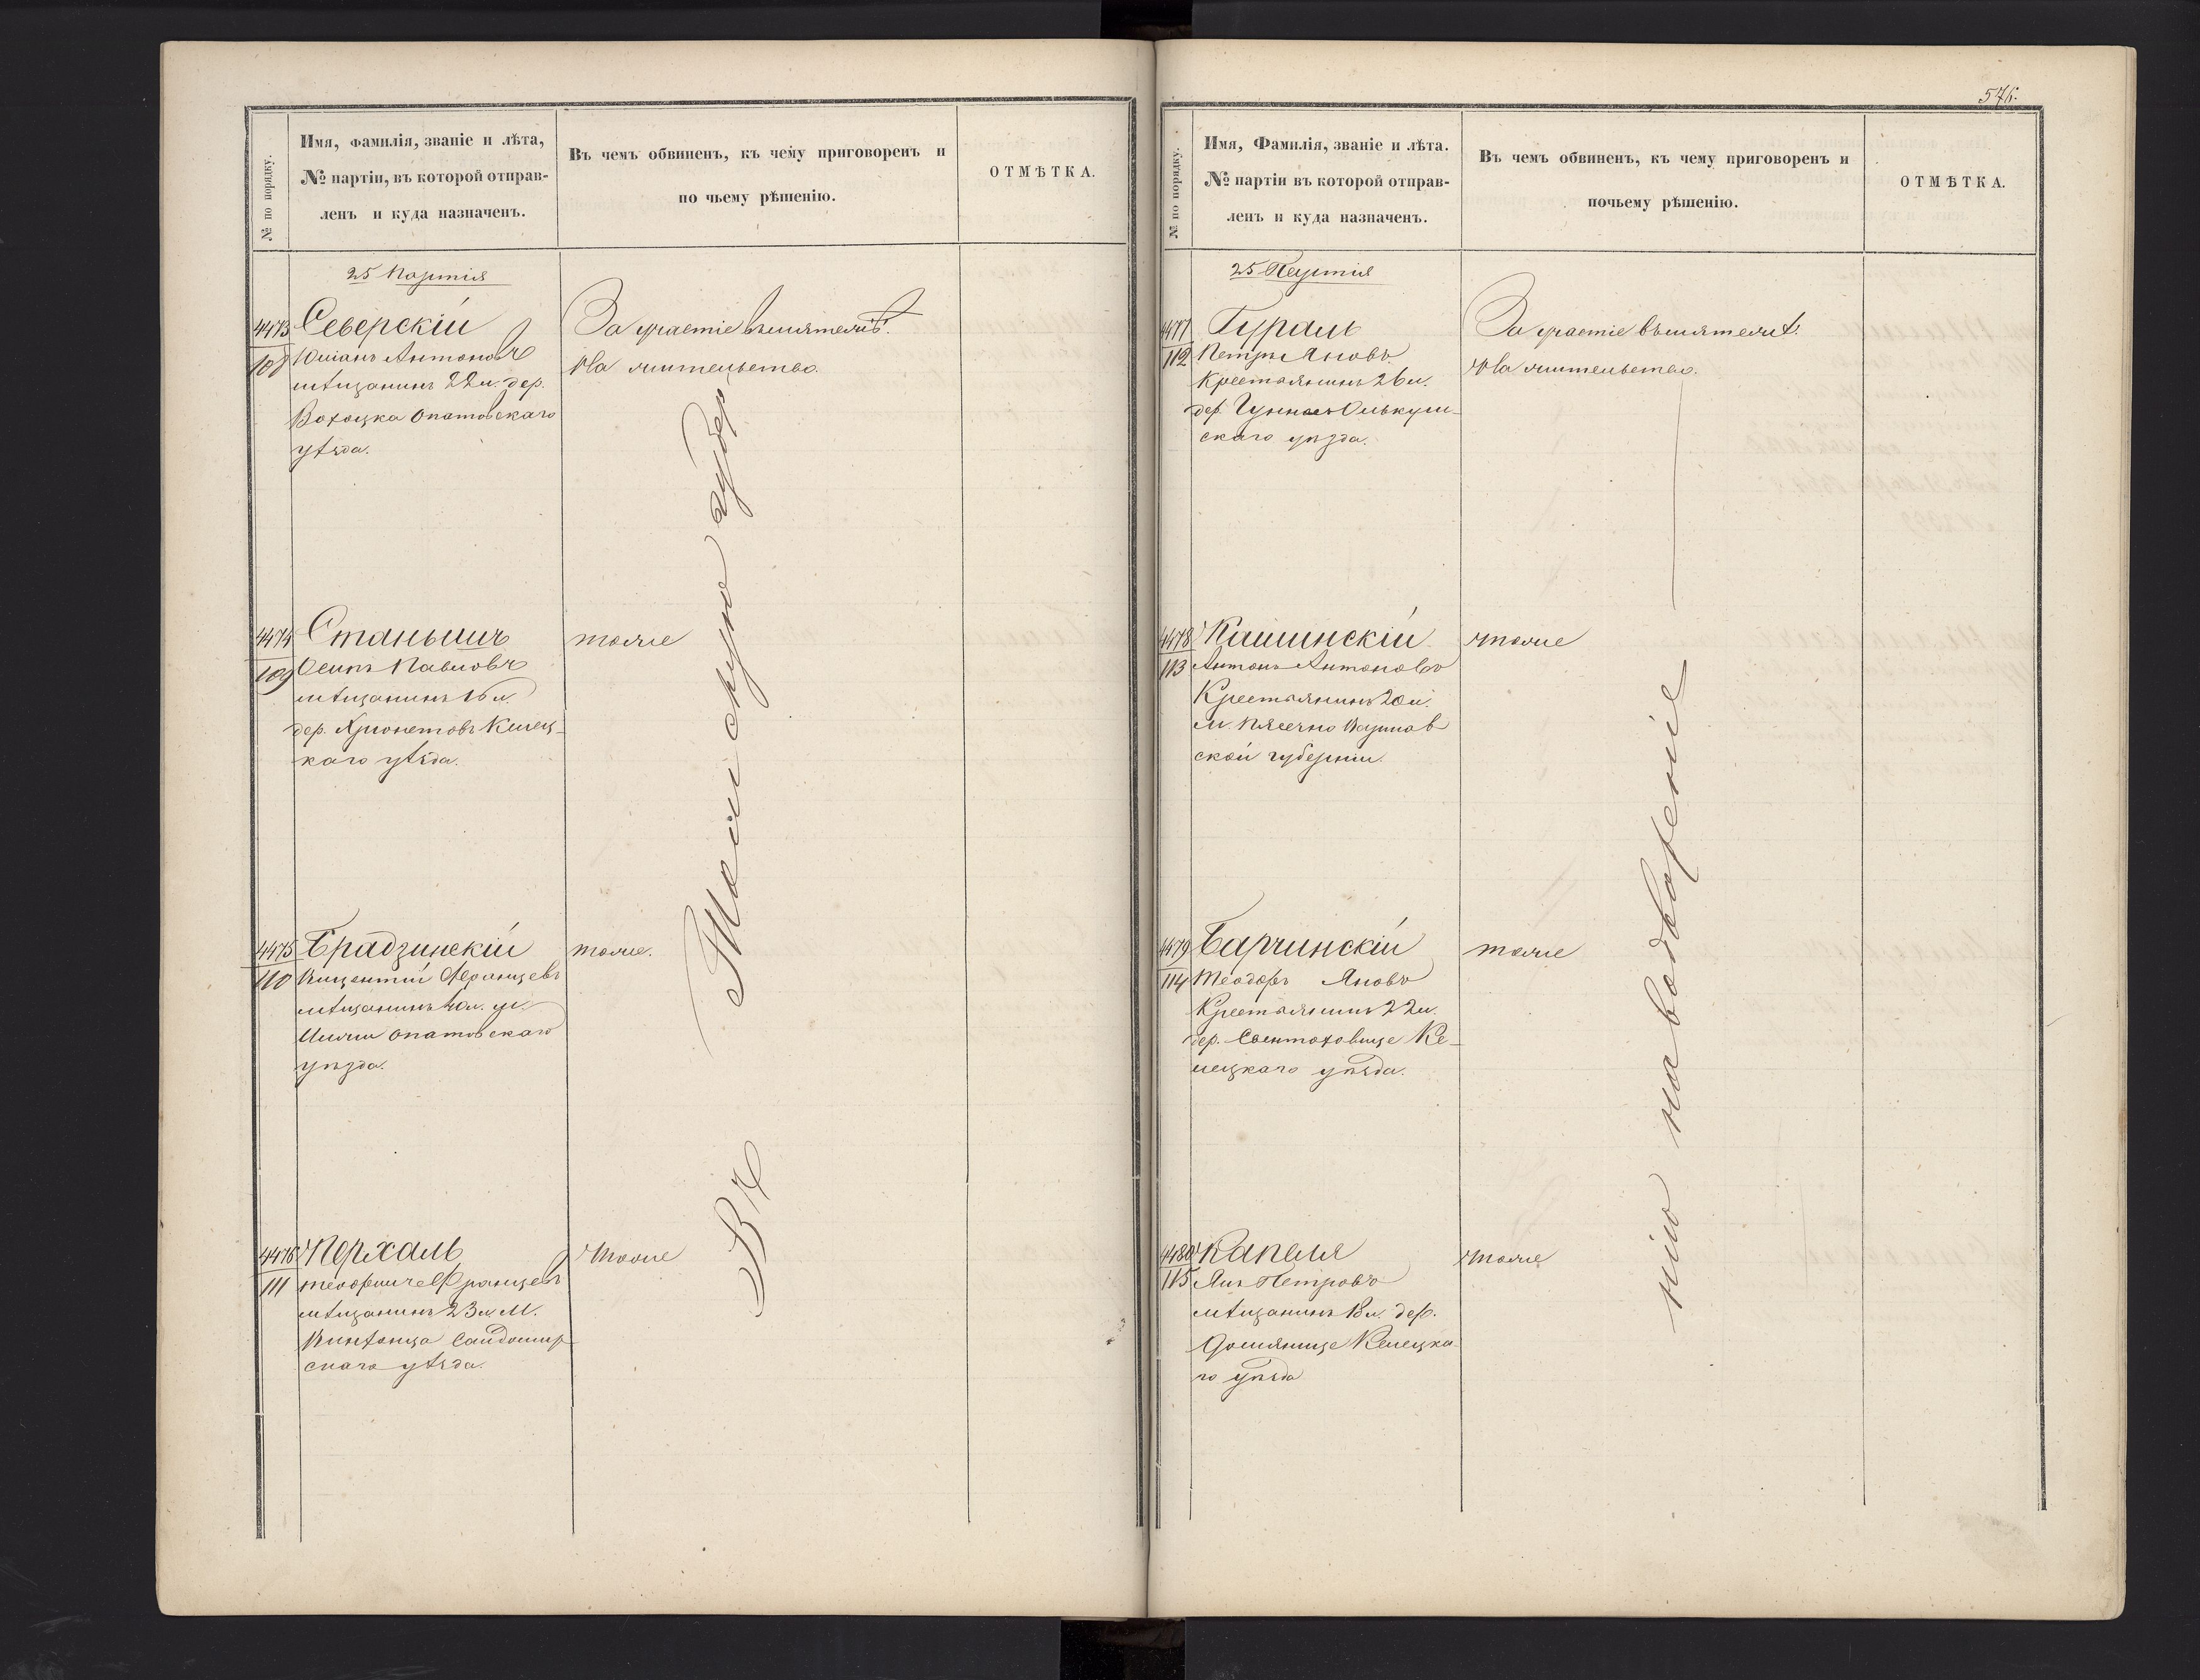 № по порядку.
Имя, фамилія, званіе и лѣта,
№ партіи, въ которой отправ-
ленъ и куда назначенъ.
Въ чемъ обвиненъ, къ чему приговоренъ и
по чьему рѣшенію.
ОТМѢТКА.
25 Партія
4473
108
Северскій
Юліанъ Антоновъ
мѣщанинъ 22 л. дер.
Опатовскаго
уѣзда.
За участіе въ мятежѣ.
На жительство.
4474
109
Станьшиъ
Осипъ Павловъ
мѣщанинъ 16 л.
дер. Келец-
каго уѣзда.
тоже
4475
110
Брадзинскій
Вицентій Францевъ
мѣщанинъ 40 л.
Опатовскаго
уѣзда.
тоже.
4476
111
Перхаль
Францевъ
мѣщанинъ 23 л. М.
Сандомир-
скаго уѣзда.
тоже
Въ Томскую губер
576.
№ по порядку.
Имя, Фамилія, званіе и лѣта.
№ партіи въ которой отправ-
ленъ и куда назначенъ.
Въ чемъ обвиненъ, къ чему приговоренъ и
почьему рѣшенію.
ОТМѢТКА.
25 Партія
4477
112
Гураль
Петръ Яновъ
Крестьянинъ 26 л.
дер. Олькуш-
скаго уѣзда.
За участіе въ мятежѣ.
На жительство.
4478
113
Кашинскій
Антонъ Антоновъ
Крестьянинъ 20 л.
м. Пясечно Варшав
ской губерніи.
тоже
4479
114
Барчинскій
Теодоръ Яновъ
Крестьянинъ 22 л.
дер. Ке-
лецкаго уѣзда.
тоже
4480
115
Капеля
Янъ Петровъ
мѣщанинъ 18 л. дер.
Келецка-
го уѣзда
тоже
нію на водвореніе